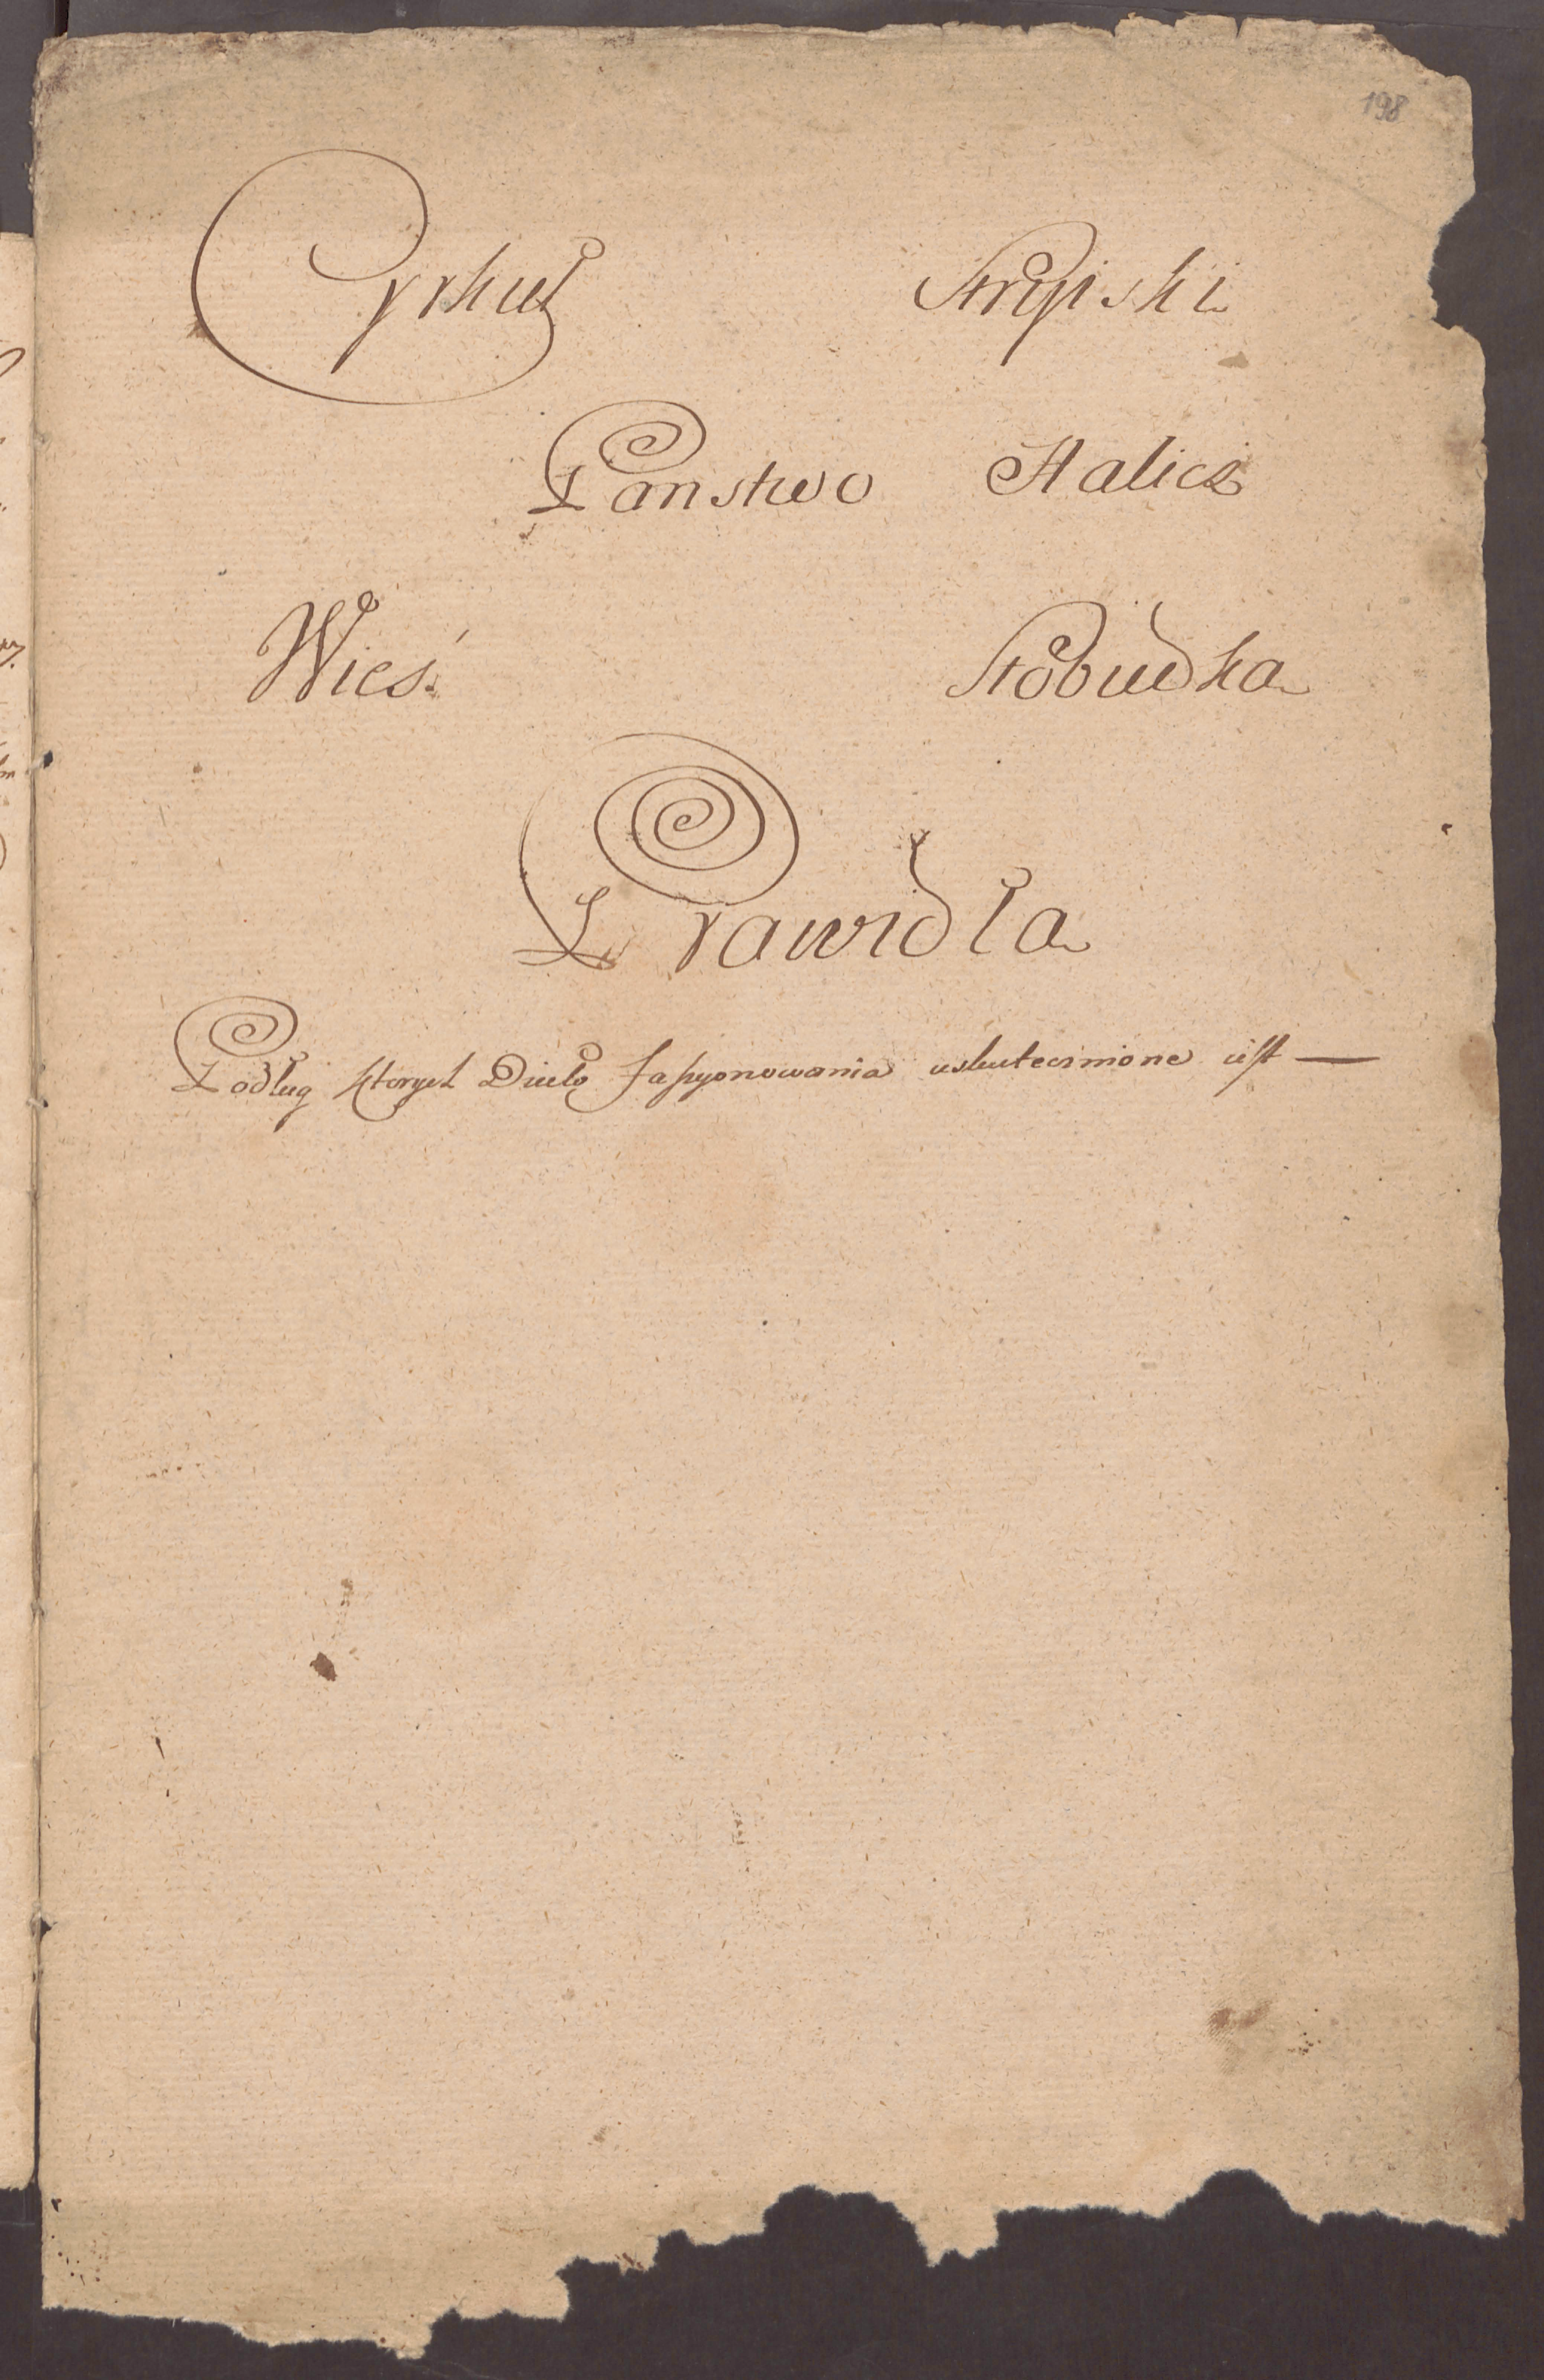 198
Cyrkuł Stryiski
Panstwo Halicz
Wieś Słobudka
Prawidła
Podług ktorych Dzieło fassyonowania uskutecznione iest —